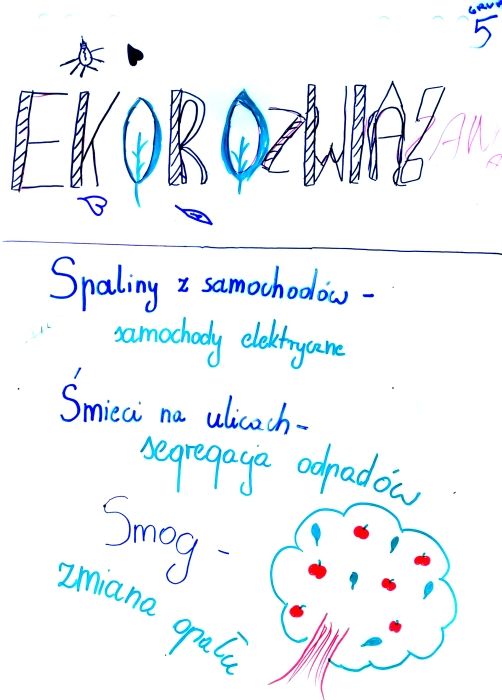 GRUP
5
EKOROZWIĄZANIA
Spaliny z samochodów -
samochody elektryczne
Śmieci na ulicach -
segregacja odpadów
Smog -
zmiana opału